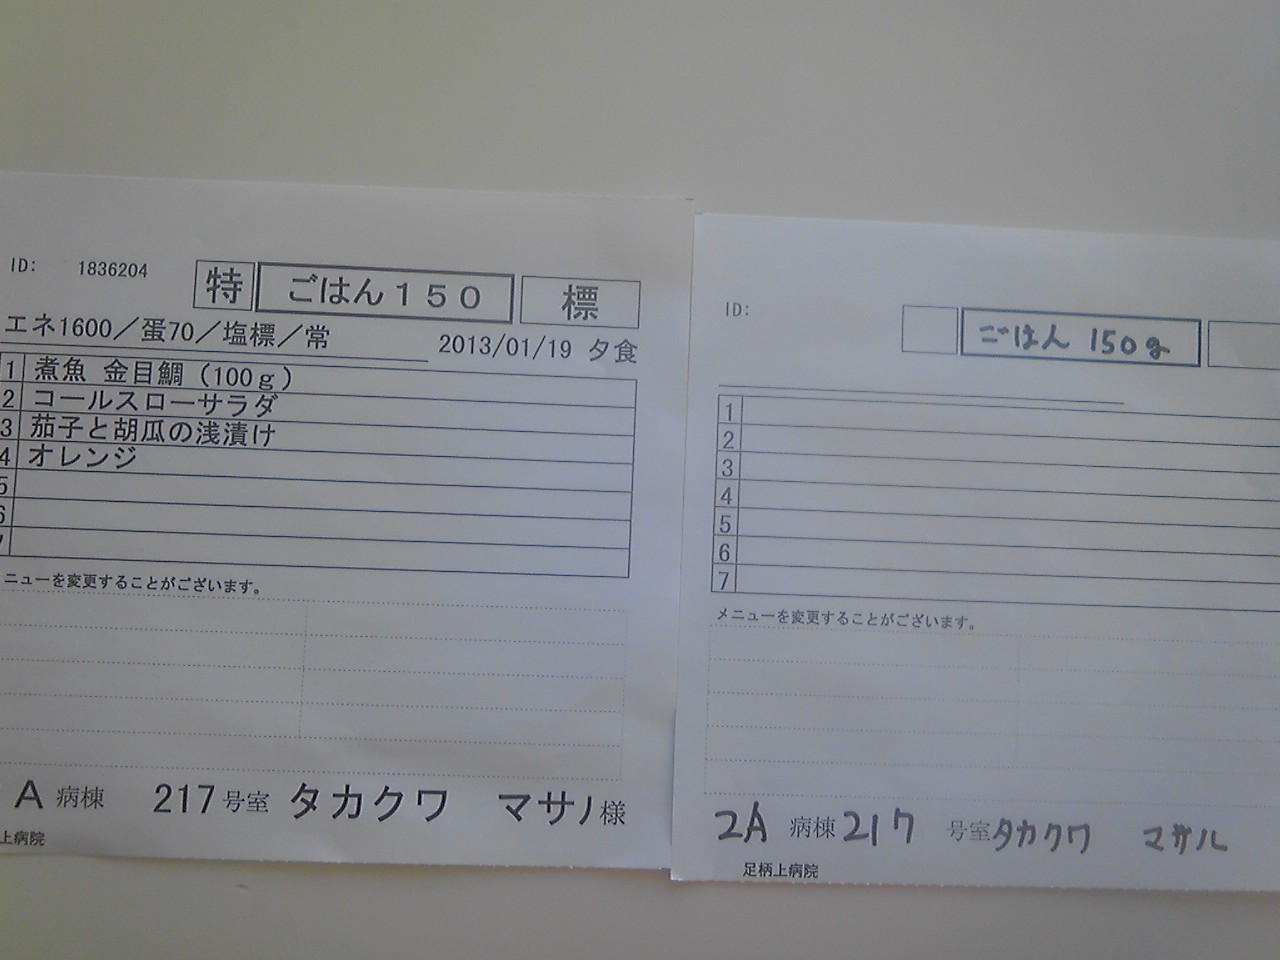 ID: 1836204 特 ごはん１５０ 標
エネ1600／蛋70／塩標／常
2013/01/19 夕食
1 煮魚 金目鯛（100ｇ）
2 コールスローサラダ
3 茄子と胡瓜の浅漬け
4 オレンジ
5
6
7
ニューを変更することがございます。
A 病棟 217号室 タカクワ マサル様
上病院
ID: ごはん 150g
1
2
3
4
5
6
7
メニューを変更することがございます。
2A 病棟 217 号室 タカクワ マサル
足柄上病院